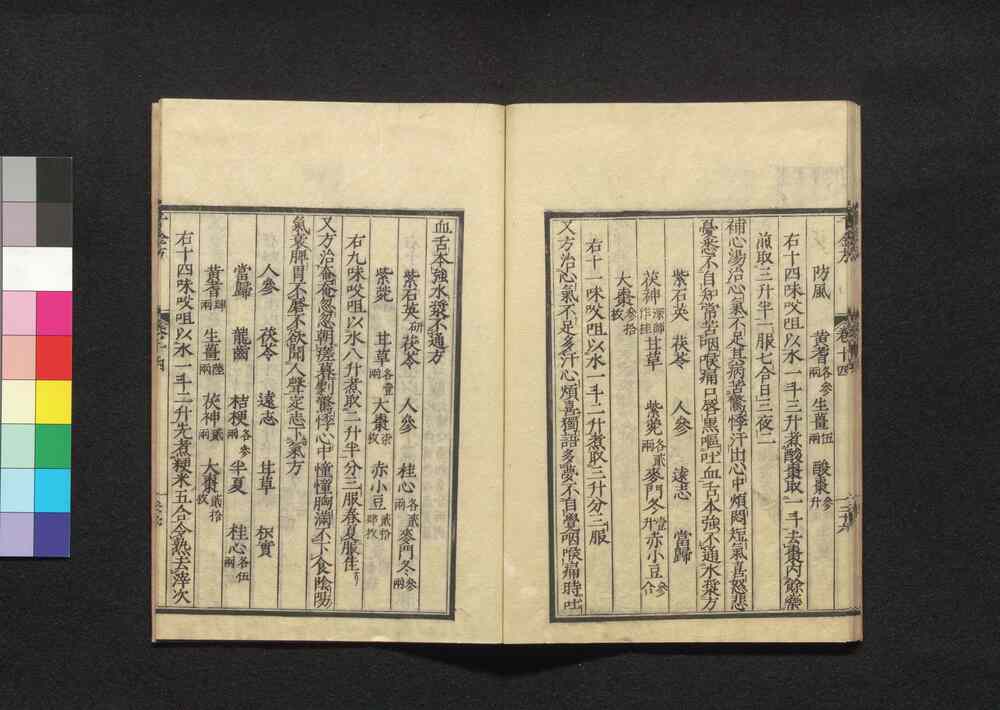 防風 黄耆各參兩 生薑伍兩 酸棗參升
右十四味㕮咀以水一斗三升煮酸棗取一斗去棗內餘藥
煎取三升半一服七合日三夜二
補心湯治心氣不足其病苦驚悸汗出心中煩悶短氣喜怒悲
憂悉不自知常苦咽喉痛口唇黑嘔吐血舌本強不通水漿方
紫石英 茯苓 人參 遠志 當歸
茯神深師作桂 甘草 紫菀各貳兩 麥門冬壹升 赤小豆參合
大棗參拾枚
右十一味㕮咀以水一斗二升煮取三升分三服
又方治心氣不足多汗心煩喜獨語多夢不自覺咽喉痛時吐
血舌本強水漿不通方
紫石英研 茯苓 人參 桂心各貳兩 麥門冬參兩
紫菀 甘草各壹兩 大棗枚 赤小豆貳拾肆枚
右九味㕮咀以水八升煮取二升半分三服春夏服佳
又方治奄奄忽忽朝瘥暮劇驚悸心中憧憧胸滿不下食陰陽
氣衰脾胃不磨不欲聞人聲定志下氣方
人參 茯苓 遠志 甘草 枳實
當歸 龍齒 桔梗各參兩 半夏 桂心各伍兩
黄耆肆兩 生薑陸兩 茯神貳兩 大棗貳拾枚
右十四味㕮咀以水一斗二升先煮粳米五合令熟去滓次